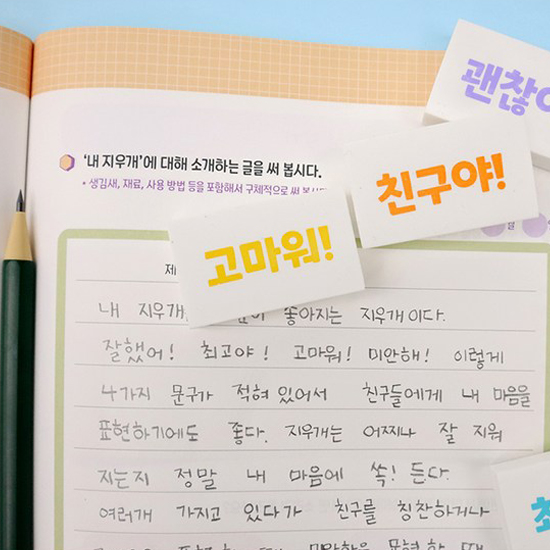 괜찮아
친구야!
고마워!
'내 지우개'에 대해 소개하는 글을 써 봅시다.
• 생김새, 재료, 사용 방법 등을 포함해서 구체적으로 써
내 지우개 좋아지는 지우개이다.
잘했어! 최고야! 고마워! 미안해! 이렇게
4가지 문구가 적혀 있어서 친구들에게 내 마음을
표현하기에도 좋다. 지우개는 어찌나 잘 지워
지는지 정말 내 마음에 쏙! 든다.
여러개 가지고 있다가 친구를 칭찬하거나